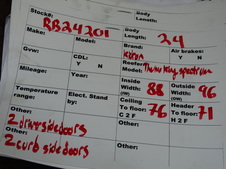 Body
Stock#: RB24201 Length: 24
Make: Model: Brand: Kidron Air brakes: Y N
Gvw: CDL: Y N Reefer Model: Thermo King spectrum
Mileage: Year: Inside Width: 88 (OW) Outside Width: 96 (OW)
Temperature range: Elect. Stand by: Ceiling To floor: 76 C 2 F Header To floor: 71 H 2 F
Other: 2 driver side doors
Other: 2 curb side doors